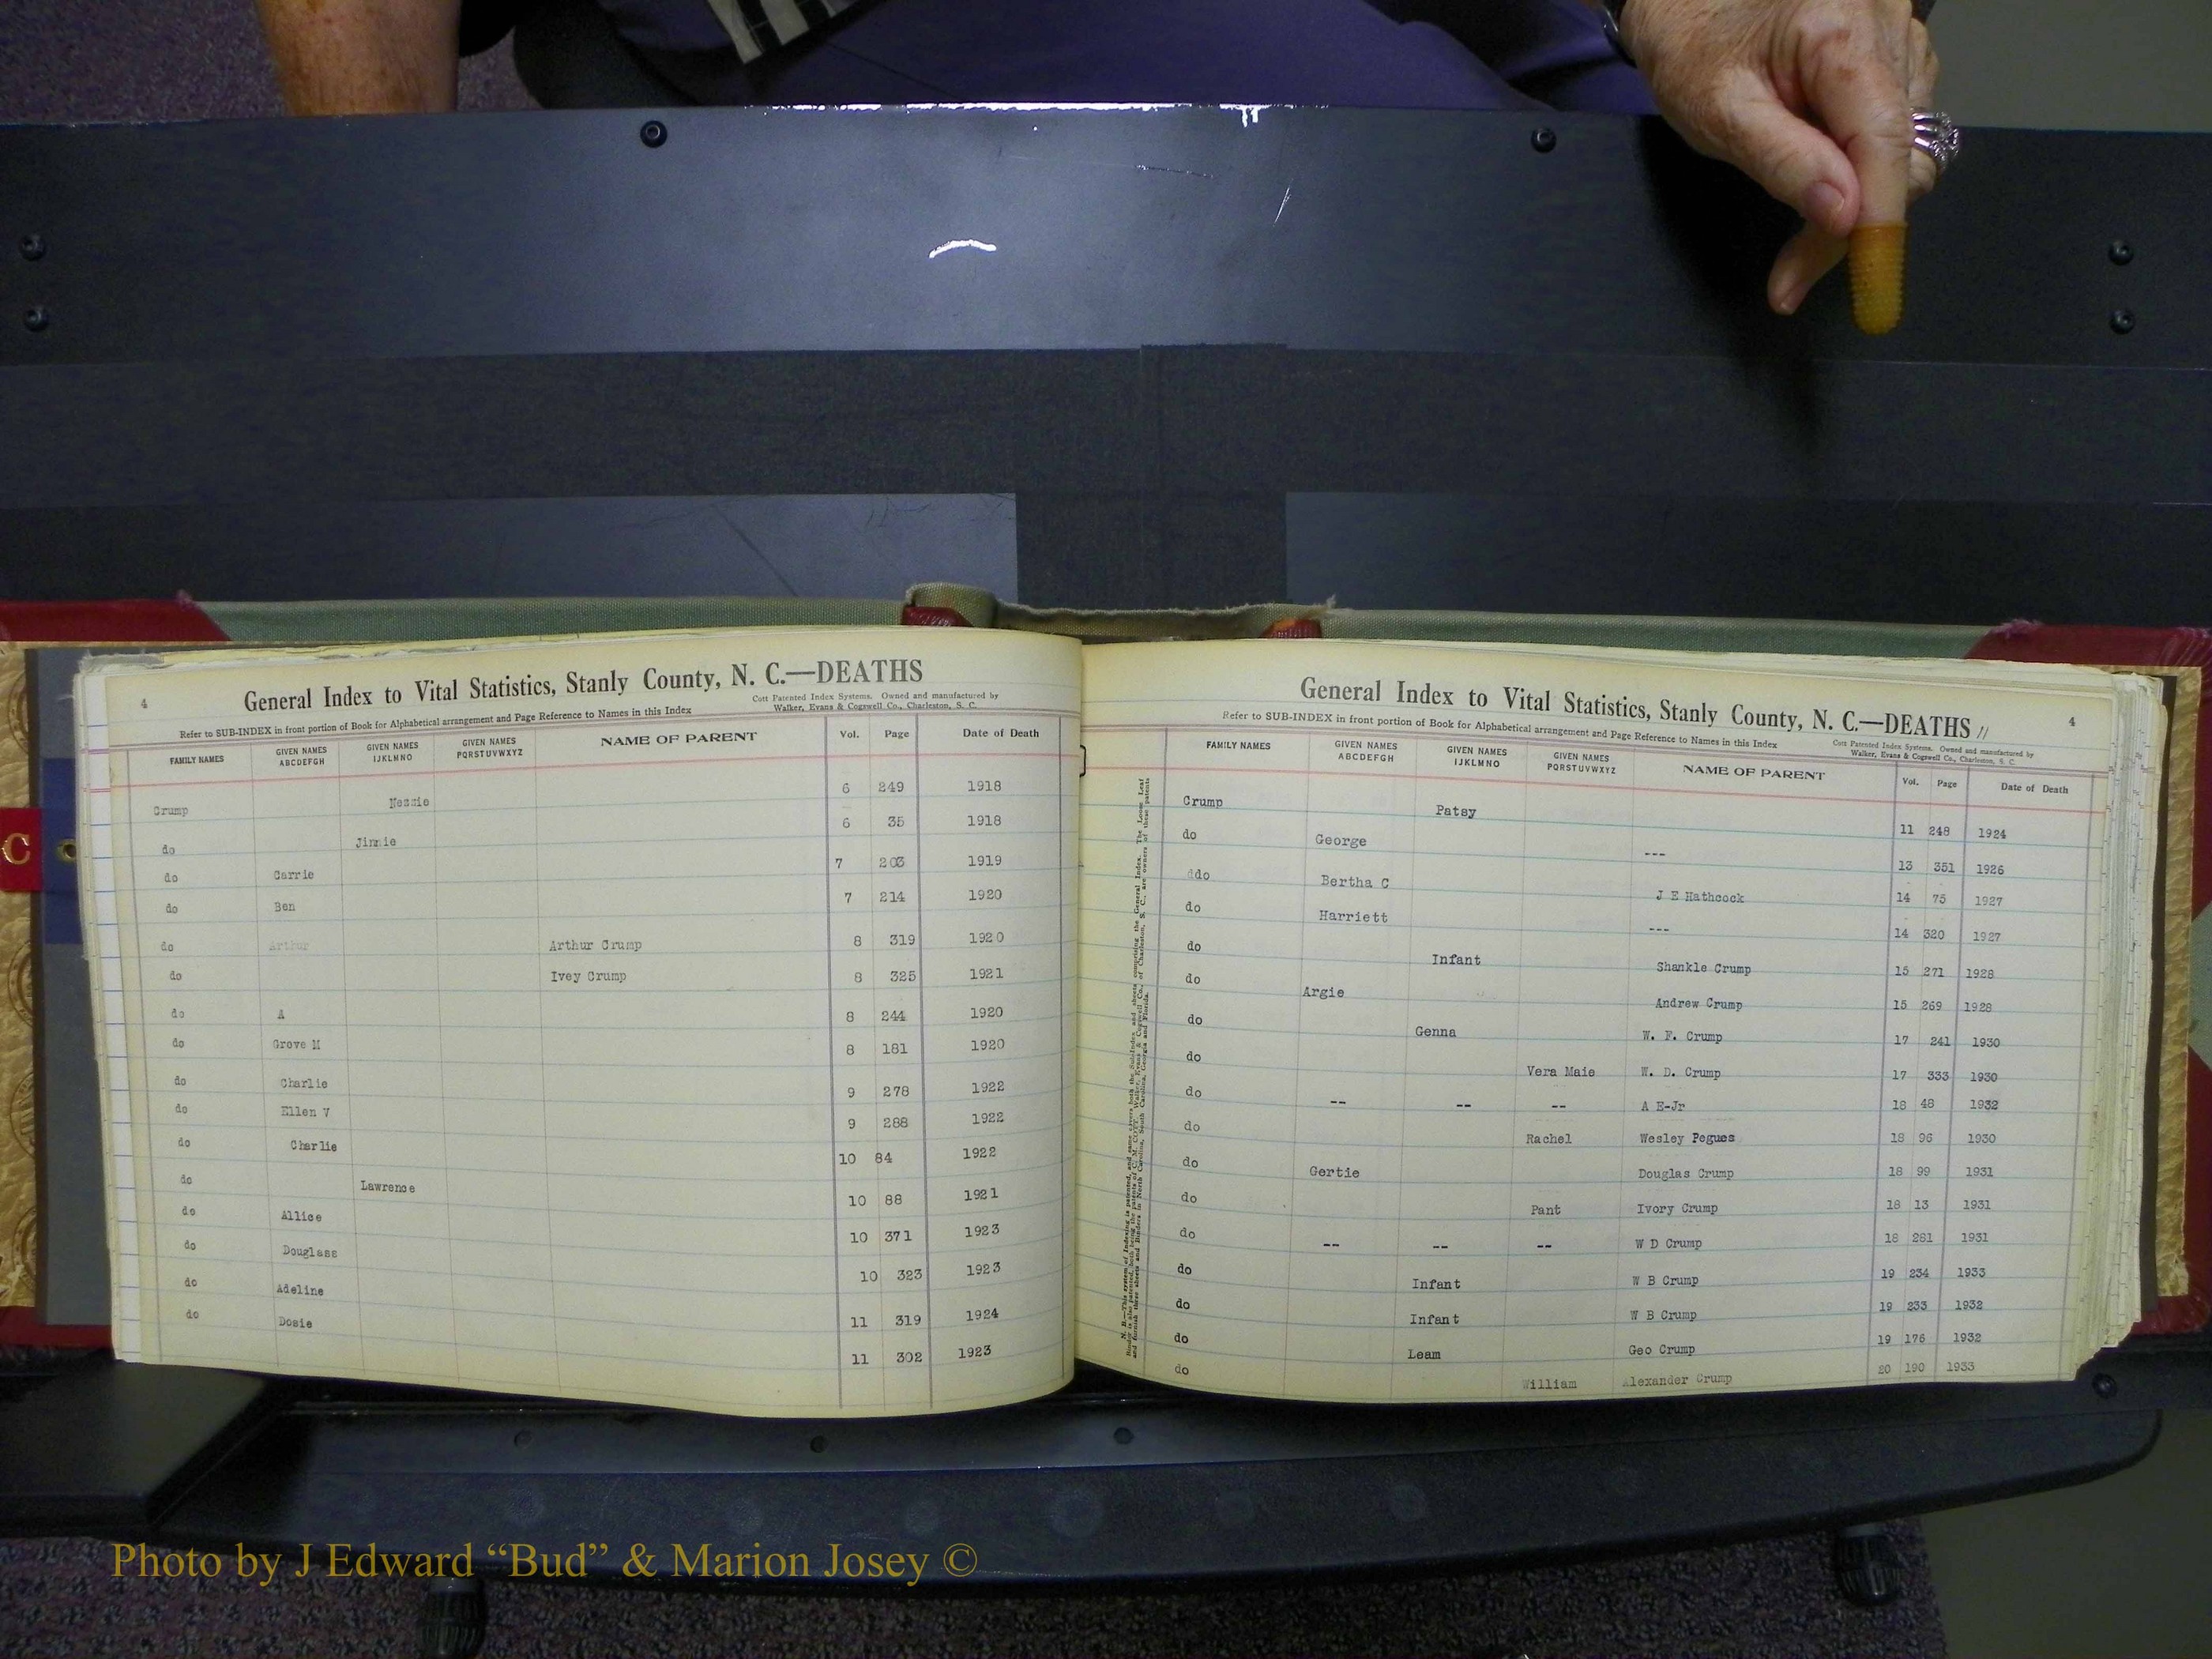 4
General Index to Vital Statistics, Stanly County, N. C.—DEATHS
Refer to SUB-INDEX in front portion of Book for Alphabetical arrangement and Page Reference to Names in this Index
Cott Patented Index Systems. Owned and manufactured by
Walker, Evans & Cogswell Co., Charleston, S. C.
FAMILY NAMES GIVEN NAMES ABCDEFGH GIVEN NAMES IJKLMNO GIVEN NAMES PQRSTUVWXYZ NAME OF PARENT Vol. Page Date of Death
Crump Nessie 6 249 1918
do Jinnie 6 35 1918
do Carrie 7 203 1919
do Ben 7 214 1920
do Arthur Arthur Crump 8 319 1920
do Ivey Crump 8 325 1921
do A 8 244 1920
do Grove M 8 181 1920
do Charlie 9 278 1922
do Ellen V 9 288 1922
do Charlie 10 84 1922
do Lawrence 10 88 1921
do Allice 10 371 1923
do Douglass 10 323 1923
do Adeline 11 319 1924
do Dosie 11 302 1923
C
General Index to Vital Statistics, Stanly County, N. C.—DEATHS //
4
Refer to SUB-INDEX in front portion of Book for Alphabetical arrangement and Page Reference to Names in this Index
Cott Patented Index Systems. Owned and manufactured by
Walker, Evans & Cogswell Co., Charleston, S. C.
FAMILY NAMES GIVEN NAMES ABCDEFGH GIVEN NAMES IJKLMNO GIVEN NAMES PQRSTUVWXYZ NAME OF PARENT Vol. Page Date of Death
Crump Patsy 11 248 1924
do George --- 13 351 1926
ddo Bertha C J E Hathcock 14 75 1927
do Harriett --- 14 320 1927
do Infant Shankle Crump 15 271 1928
do Argie Andrew Crump 15 269 1928
do Genna W. F. Crump 17 241 1930
do Vera Maie W. D. Crump 17 333 1930
do -- -- -- A E-Jr 18 48 1932
do Rachel Wesley Pegues 18 96 1930
do Gertie Douglas Crump 18 99 1931
do Pant Ivory Crump 18 13 1931
do -- -- -- W D Crump 18 281 1931
do Infant W B Crump 19 234 1933
do Infant W B Crump 19 233 1932
do Leam Geo Crump 19 176 1932
do William Alexander Crump 20 190 1933
Photo by J Edward “Bud” & Marion Josey ©